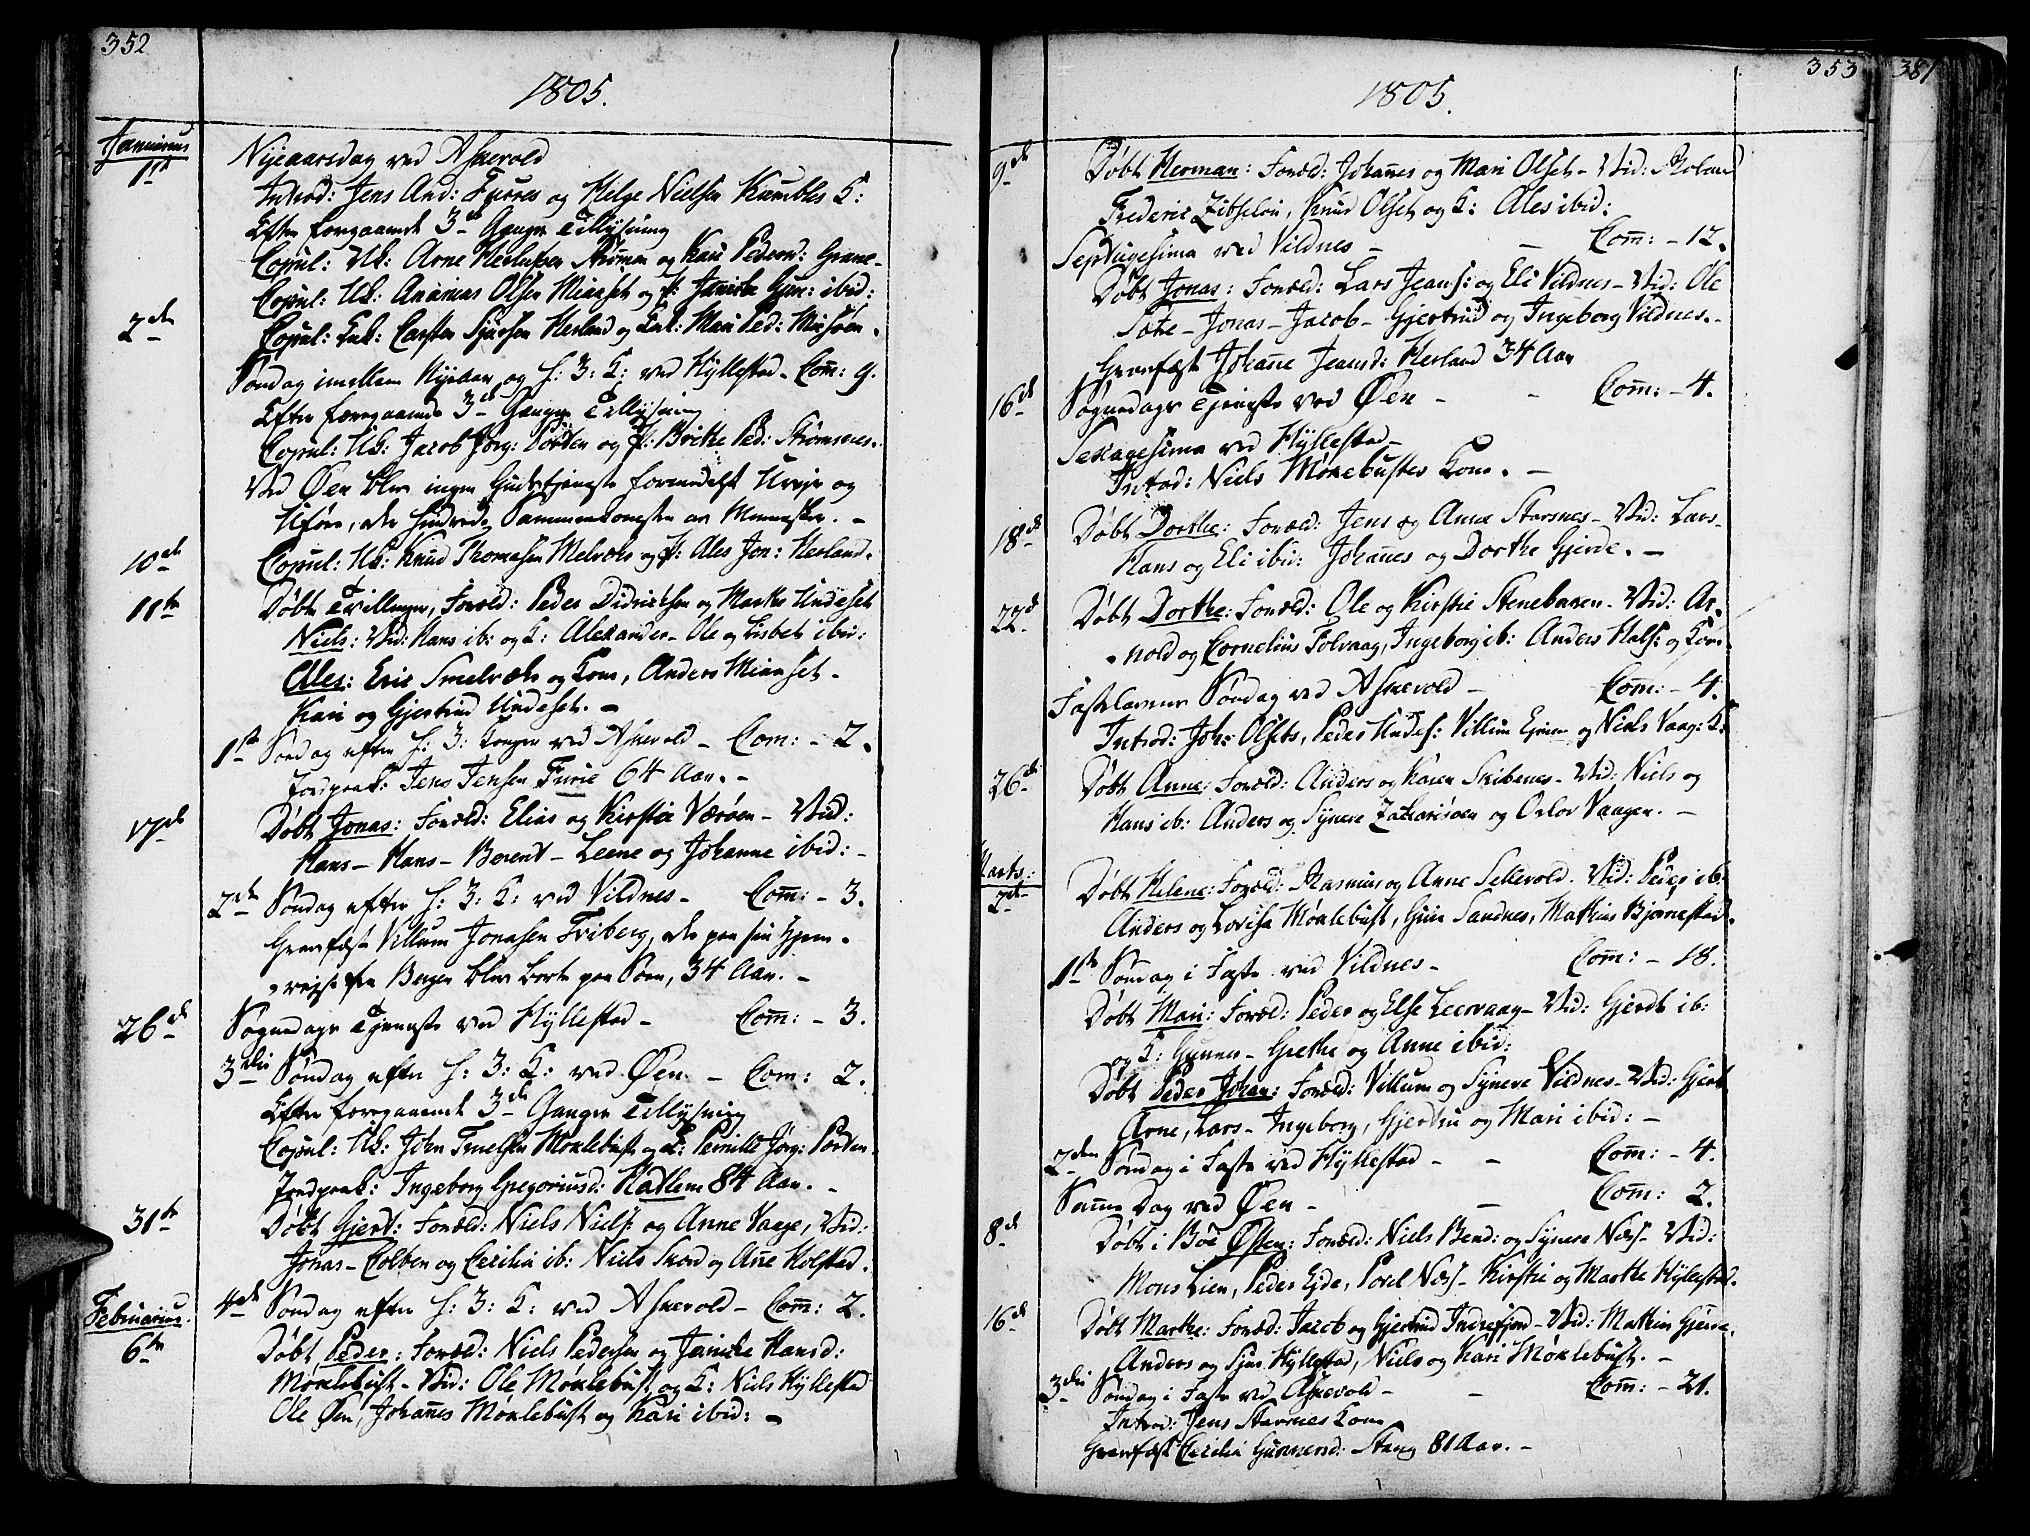 352
1805.
Januarius
1ste Nyeaarsdag ved Askevold
Introd: Jens And: Furres og Helge Nielsen Kumbles K:
Efter foregaaende 3de Gangers Tillysning
Copul: Uk: Arne Herlufsen Strømen og Kari Pedersd: Grane-
Copul: Uk: Ananias Olsen Mianset og P: Janiche Gun: ibid:
2den Copul: Enk: Carsten Sjursen Herland og Enk: Mari Ped: Misøen.
Søndag imellem Nyeaar og H: 3: K: ved Hyllestad - Com: 9.
Efter foregaaende 3de Ganger Tillysning
Copul: Uk: Jacob Jørg: Porten og P: Brithe Ped: Strømsnes.
Ved Øen blev ingen Gudstjeneste formedelst Uveir og
Uføre, der hindrede Sammenkomsten av Mennesker. -
10de Copul: Uk: Knud Thomasen Melvær og P: Ales Jon: Herland.
11te Døbt Tvillinger, Foræld: Peder Didrichsen og Marthe Undeset
Niels: Vid: Hans ib: og K: Alexander - Ole og Lisbet ibid:
Ales: Eric Smelvær og Kone, Anders Mianset -
Kari og Gjertrud Undeset. -
1ste Søndag efter H: 3: Konger ved Askevold - Com: - 2.
Jordpaak: Jens Jensen Furie 64 Aar. -
17de Døbt Jonas: Foræld: Elias og Kirstie Værøen - Vid:
Hans - Hans - Berent - Leene og Johanne ibid: -
2den Søndag efter H: 3: K: ved Vildnes - Com: - 3.
Gravfæst Villum Jonasen Friberg, der paa sin Hjem-
reise fra Bergen blev borte paa Søen, 34 Aar. -
26de Sognedags Tjeneste ved Hyllestad - Com: - 3.
3die Søndag efter H: 3: K: ved Øen - Com: 2.
Efter foregaaende 3de Ganger Tillysning
Copul: Uk: John Truelsen Møklebust og P: Pernille Jørg: Porten.
Jordpaak: Ingeborg Gregoriusd: Hatlem 84 Aar. -
31te Døbt Gjert: Foræld: Niels Niels: og Anne Vaage, Vid:
Jonas - Colben og Cecilia ib: Niels Skord og Ane Holstad.
Februarius. 4de Søndag efter H: 3: K: ved Askevold - Com: 2.
6te Døbt Peder: Foræld: Niels Pedersen og Janiche Hansd:
Møklebust - Vid: Ole Møklebust og K: Niels Hyllestad
Ole Øen, Johanes Møklebust og Kari ibid: -
353
381
1805.
9de Døbt Herman: Foræld: Johanes og Mari Olset - Vid:
Frederic Knud Olset og K: Ales ibid:
Septuagesima ved Vildnes - - Com: - 12.
Døbt Jonas: Foræld: Lars Jens: og Eli Vildnes - Vid: Ole
- Jonas - Jacob - Gjertrud og Ingeborg Vildnes. -
Gravfæst Johane Jensd: Herland 34 Aar
16de Sognedags Tjeneste ved Øen - - Com: - 4.
Sexagesima ved Hyllestad -
Introd: Niels Møklebustes Kone. -
18de Døbt Dorthe: Foræld: Jens og Anna Starsnes - Vid: Lars -
Hans og Eli ibid: Johanes og Dorthe Gjerde. -
22de Døbt Dorthe: Foræld: Ole og Kirstie Stenebaken - Vid: Ar-
nold og Cornelius Tolvaag, Ingeborg ib: Anders Hals: og Kone
Fastelavns Søndag ved Askevold - Com: - 4.
Introd: Joh: Olsets, Peder Undes: Villum og Niels Vaag: K:
26de Døbt Anne: Foræld: Anders og Karen Skibenes - Vid: Niels og
Hans ib: Anders og Synneve Zacharisøen og Orlov Vaagen. -
Marts:
2de Døbt Helene: Foræld: Rasmus og Anne Sellevold. Vid: Peder ib:
Anders og Lovisa Møklebust, Guri Sandnes, Mathias Bjørnestad.
1ste Søndag i Faste ved Vildnes - Com: - 18.
Døbt Mari: Foræld: Peder og Else Leervaag - Vid: Gjerdt ib:
og K: Gunner - Grethe og Anne ibid:
Døbt Peder Johan: Foræld: Villum og Synneve Vildnes - Vid: Gjert
Arne, Lars - Ingeborg, Gjertru og Mari ibid: -
2den Søndag i Faste ved Hyllestad - - Com: - 4.
Samme Dag ved Øen - - Com: 2.
8de Døbt i Bøe Østen: Foræld: Niels Bend: og Synneve Næs - Vid:
Mons Lien, Peder Eide, Povel Næs - Kirstie og Marthe Hyllestad.
16de Døbt Marthe: Foræld: Jacob og Gjertrud Indrefjord - Vid: Mathias Gjerde.
Anders og Sjur Hyllestad, Niels og Kari Møklebust. -
3die Søndag i Faste ved Askevold - - Com: - 21.
Introd: Jens Starsnes Kone
Gravfæst Cecilia Gunnersd: Stang 81 Aar. -